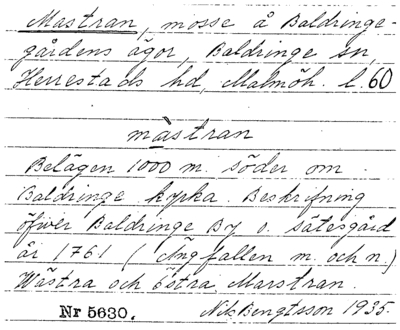 Mastran, mosse å Baldringe-
gårdens ägor, Baldringe sn,
Herrestads hd, Malmöh. l. 60
màstran
Belägen 1000 m. söder om
Baldringe kyrka. Beskrifning
öfver Baldringe By o. sätesgård
år 1761 (Ängfallen m. och n.)
Wästra och östra Marstran.
Nr 5630. Nils Bengtsson 1935.